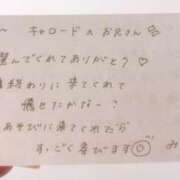 ～ キャロードのお兄さん
選んでくれてありがとう♡
最終わりに来てくれて
癒せたかな～？
あそびに来てくれたら
すっごく喜びます◎
み